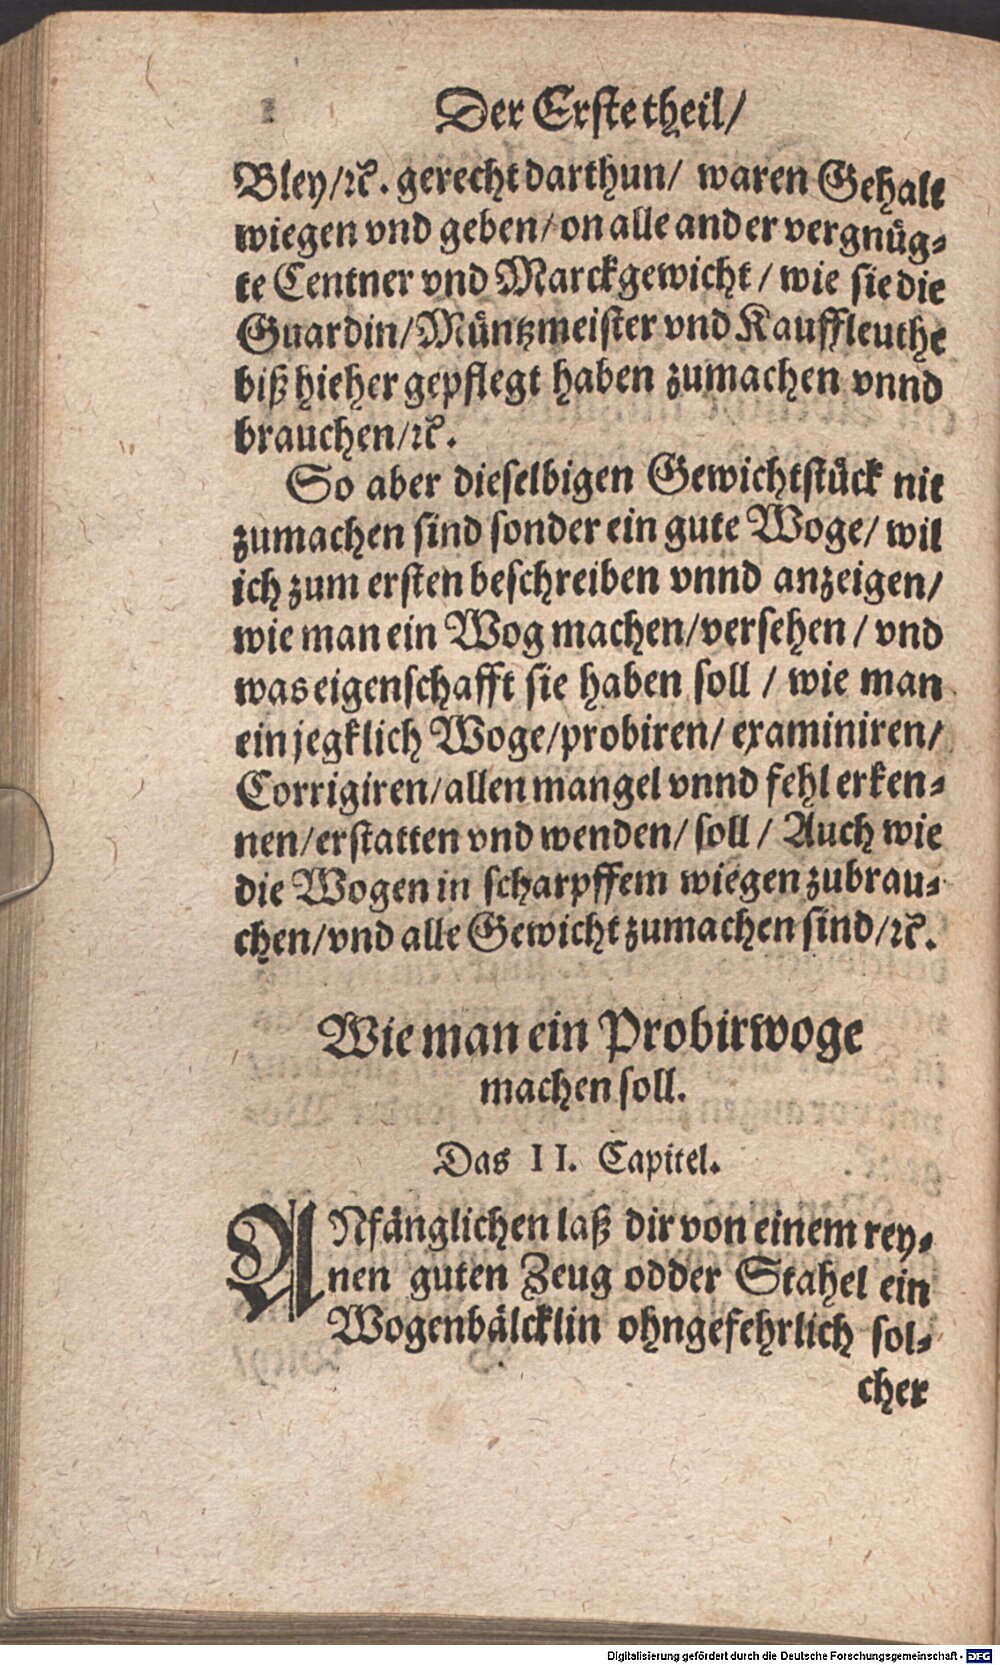 1 Der Erste theil/
Bley/ꝛc. gerecht darthun/ waren Gehalt
wiegen vnd geben/ on alle ander vergnüg⸗
te Centner vnd Marckgewicht/ wie sie die
Guardin/ Müntzmeister vnd Kauffleuthe
biß hieher gepflegt haben zumachen vnnd
brauchen/ꝛc.
So aber dieselbigen Gewichtstück nit
zumachen sind sonder ein gute Woge/ wil
ich zum ersten beschreiben vnnd anzeigen/
wie man ein Wog machen/ versehen/ vnd
was eigenschafft sie haben soll/ wie man
ein jegklich Woge/ probiren/ examiniren/
Corrigiren/ allen mangel vnnd fehl erken⸗
nen/ erstatten vnd wenden/ soll/ Auch wie
die Wogen in scharpffem wiegen zubrau⸗
chen/ vnd alle Gewicht zumachen sind/ꝛc.
Wie man ein Probirwoge
machen soll.
Das II. Capitel.
ANfänglichen laß dir von einem rey⸗
nen guten Zeug odder Stahel ein
Wogenbälcklin ohngefehrlich sol⸗
cher
Digitalisierung gefördert durch die Deutsche Forschungsgemeinschaft - DFG